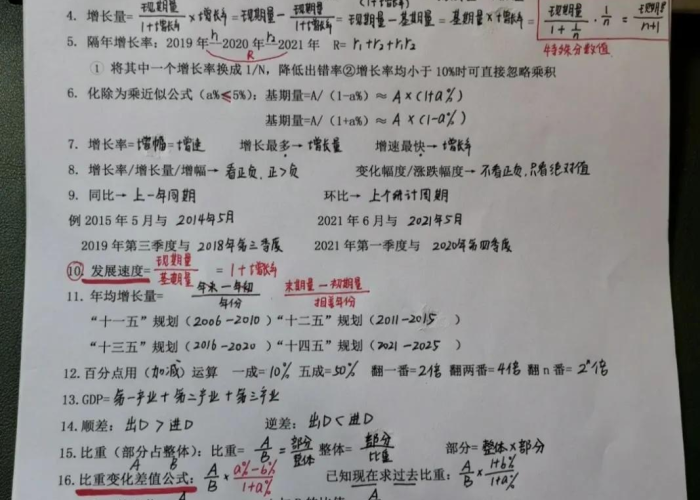 4. 增长量=现期量/(1+增长率)×增长率=现期量-现期量/(1+增长率)=现期量-基期量=基期量×增长率=现期量/(1+1/n)·1/n=现期量/(n+1)
特殊分数值
5. 隔年增长率：2019年 r₁ 2020年 r₂ 2021年 R=r₁+r₂+r₁r₂
R
① 将其中一个增长率换成1/N，降低出错率②增长率均小于10%时可直接忽略乘积
6. 化除为乘近似公式（a%≤5%）：基期量=A/（1-a%）≈ A×(1+a%)
基期量=A/（1+a%）≈ A×(1-a%)
7. 增长率=增幅=增速 增长最多→增长量 增速最快→增长率
8. 增长率/增长量/增幅→看正负,正>负 变化幅度/涨跌幅度→不看正负,只看绝对值
9. 同比→上一年同期 环比→上个统计周期
例 2015年5月与 2014年5月 2021年6月与 2021年5月
2019年第三季度与 2018年第三季度 2021年第一季度与 2020年第四季度
⑩ 发展速度=现期量/基期量=1+增长率
11. 年均增长量=年末-年初/年份 末期量-初期量/相差年份
“十一五”规划（2006-2010）“十二五”规划（2011-2015）
“十三五”规划（2016-2020）“十四五”规划（2021-2025）
12. 百分点用（加减）运算 一成=10% 五成=50% 翻一番=2倍 翻两番=4倍 翻n番=2ⁿ倍
13. GDP=第一产业+第二产业+第三产业
14. 顺差：出口>进口 逆差：出口<进口
15. 比重（部分占整体）：比重=A/B=部分/整体 整体=部分/比重 部分=整体×比重
A B
16. 比重变化差值公式：A/B×(a%-b%)/(1+a%) 已知现在求过去比重：A/B×(1+b%)/(1+a%)